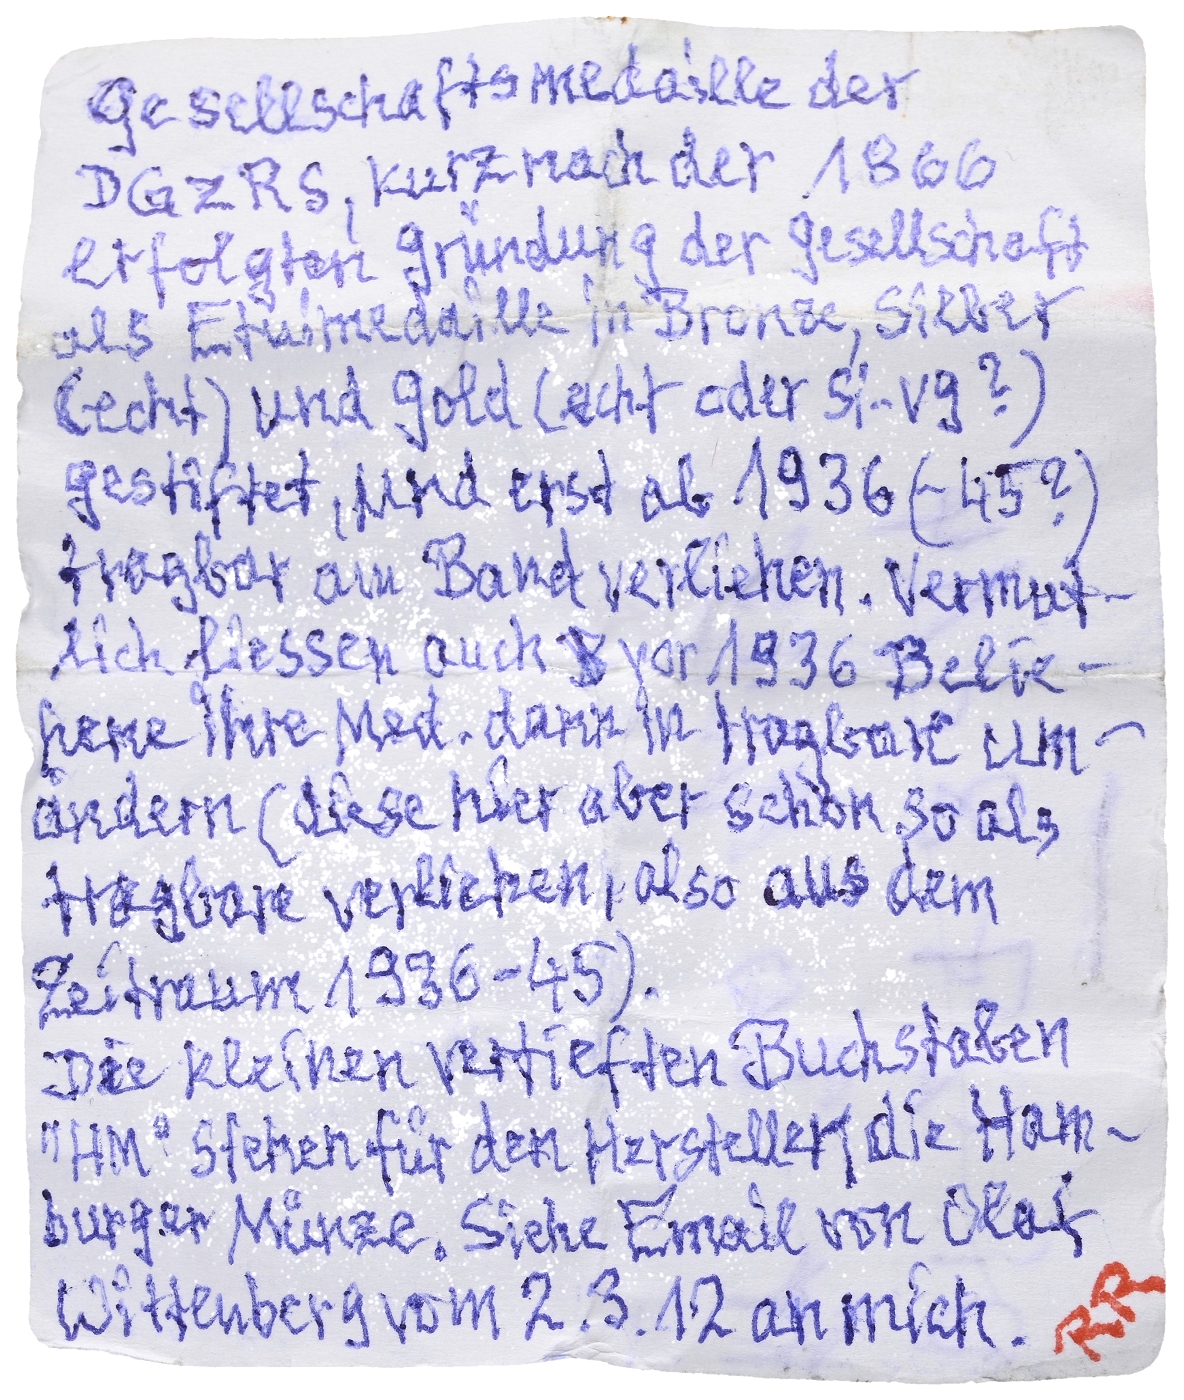 Gesellschaftsmedaille der
DGzRS, kurz nach der 1866
erfolgten Gründung der Gesellschaft
als Etuimedaille in Bronze, Silber
(echt) und Gold (echt oder Si-vg?)
gestiftet, und erst ab 1936 (-45?)
tragbar am Band verliehen. Vermut-
lich liessen auch vor 1936 Belie-
hene ihre Med. dann in tragbare um-
ändern (diese hier aber schon so als
tragbare verliehen, also aus dem
Zeitraum 1936-45).
Die kleinen vertieften Buchstaben
"HM" stehen für den Hersteller, die Ham-
burger Münze. Siehe Email von Olaf
Wittenberg vom 2.3.12 an mich.